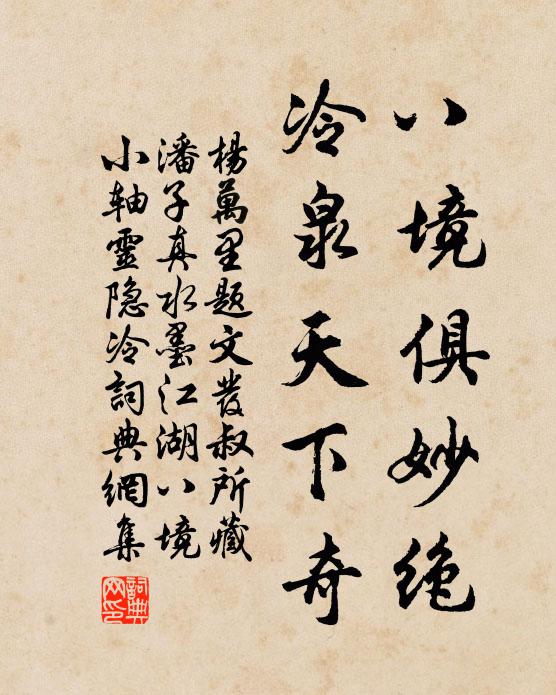 八境俱妙绝
冷泉天下奇
楊萬里题文發叔所藏
潘子真水墨江湖八境
小轴靈隐冷詞典網集
詞典
网印